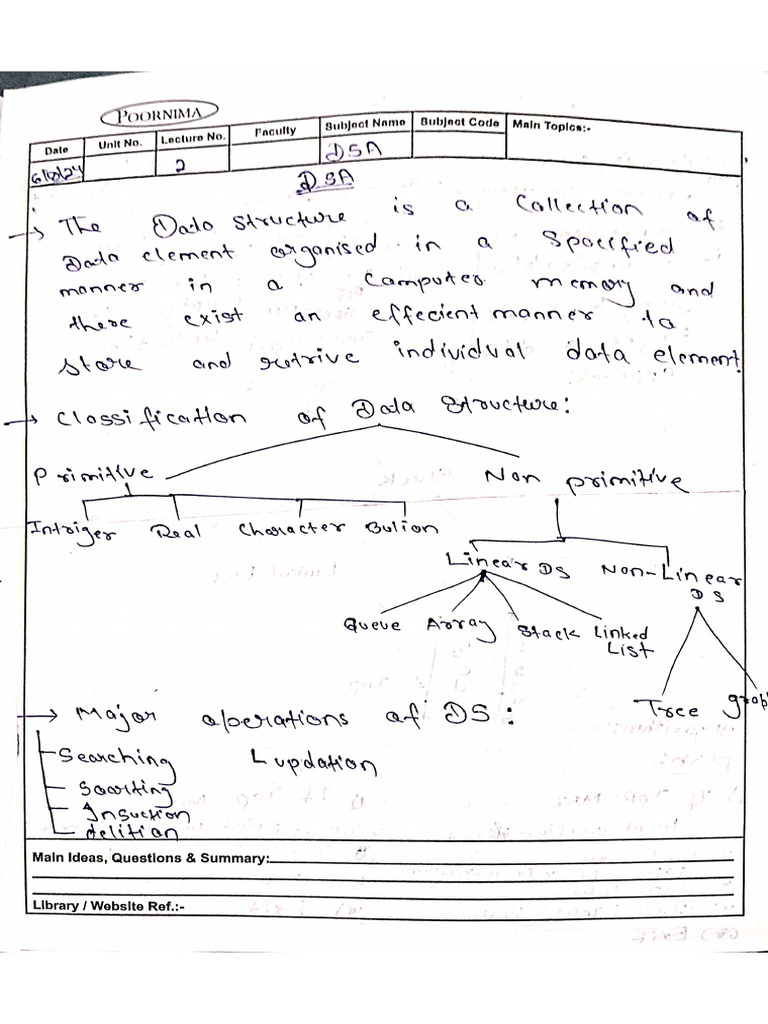 POORNIMA
Date Unit No. Lecture No. Faculty Subject Name Subject Code Main Topics:-
2 DSA
DSA
→ The Data structure is a Collection of
Data element organised in a Specified
manner in a Computer memory and
there exist an effecient manner to
store and retrive individual data element
→ Classification of Data Structure:
Primitive Non primitive
Intriger Real Character Bulion
Linear DS Non-Linear DS
Queue Array Stack Linked List
Tree grap
→ Major operations of DS:
Searching updation
Soarting
Insuction
delition
Main Ideas, Questions & Summary:
Library / Website Ref.:-